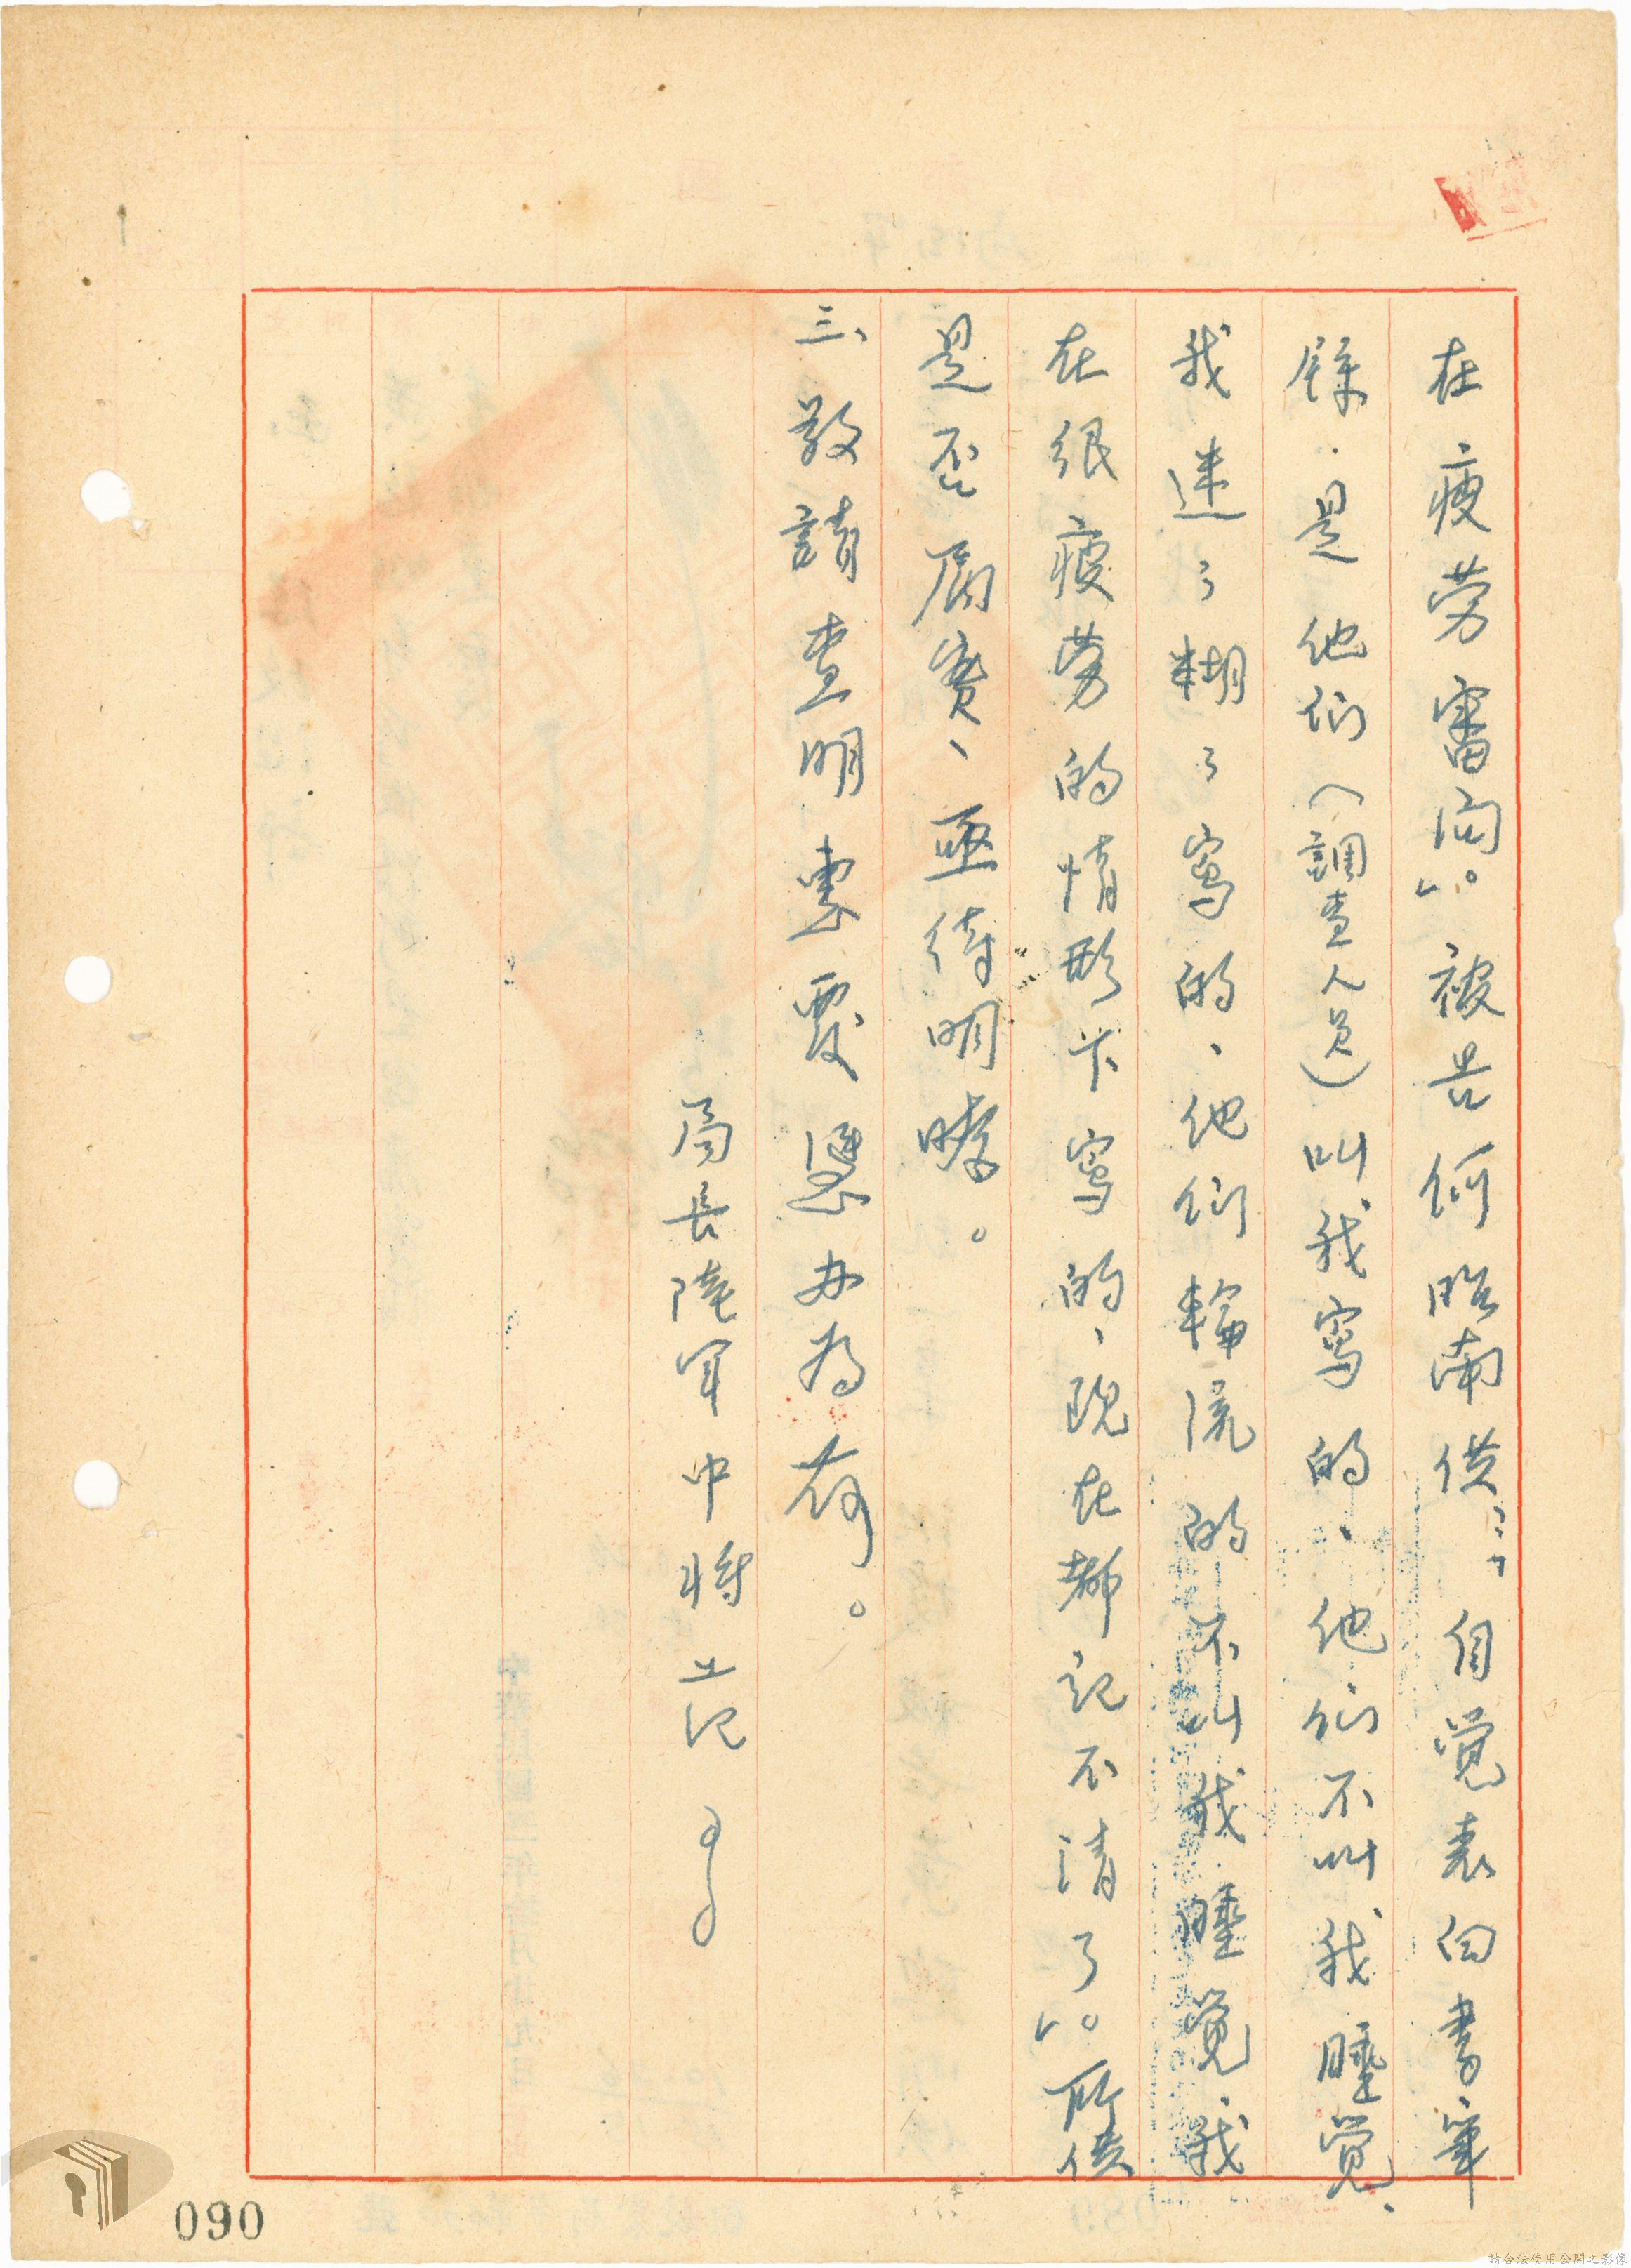 在疲勞審問」。被告何昭南供：「自覺表白書、筆
錄、是他们（調查人員）叫我寫的、他们不叫我睡覺、
我迷了糊了寫的、他们輪流的不叫我睡覺、我
在很疲勞的情形下寫的、現在都記不清了」。所供
是否屬實、亟待明瞭。
三、敬請查明惠覆憑办為荷。
局長陸軍中將
090
請合法使用公開之影像